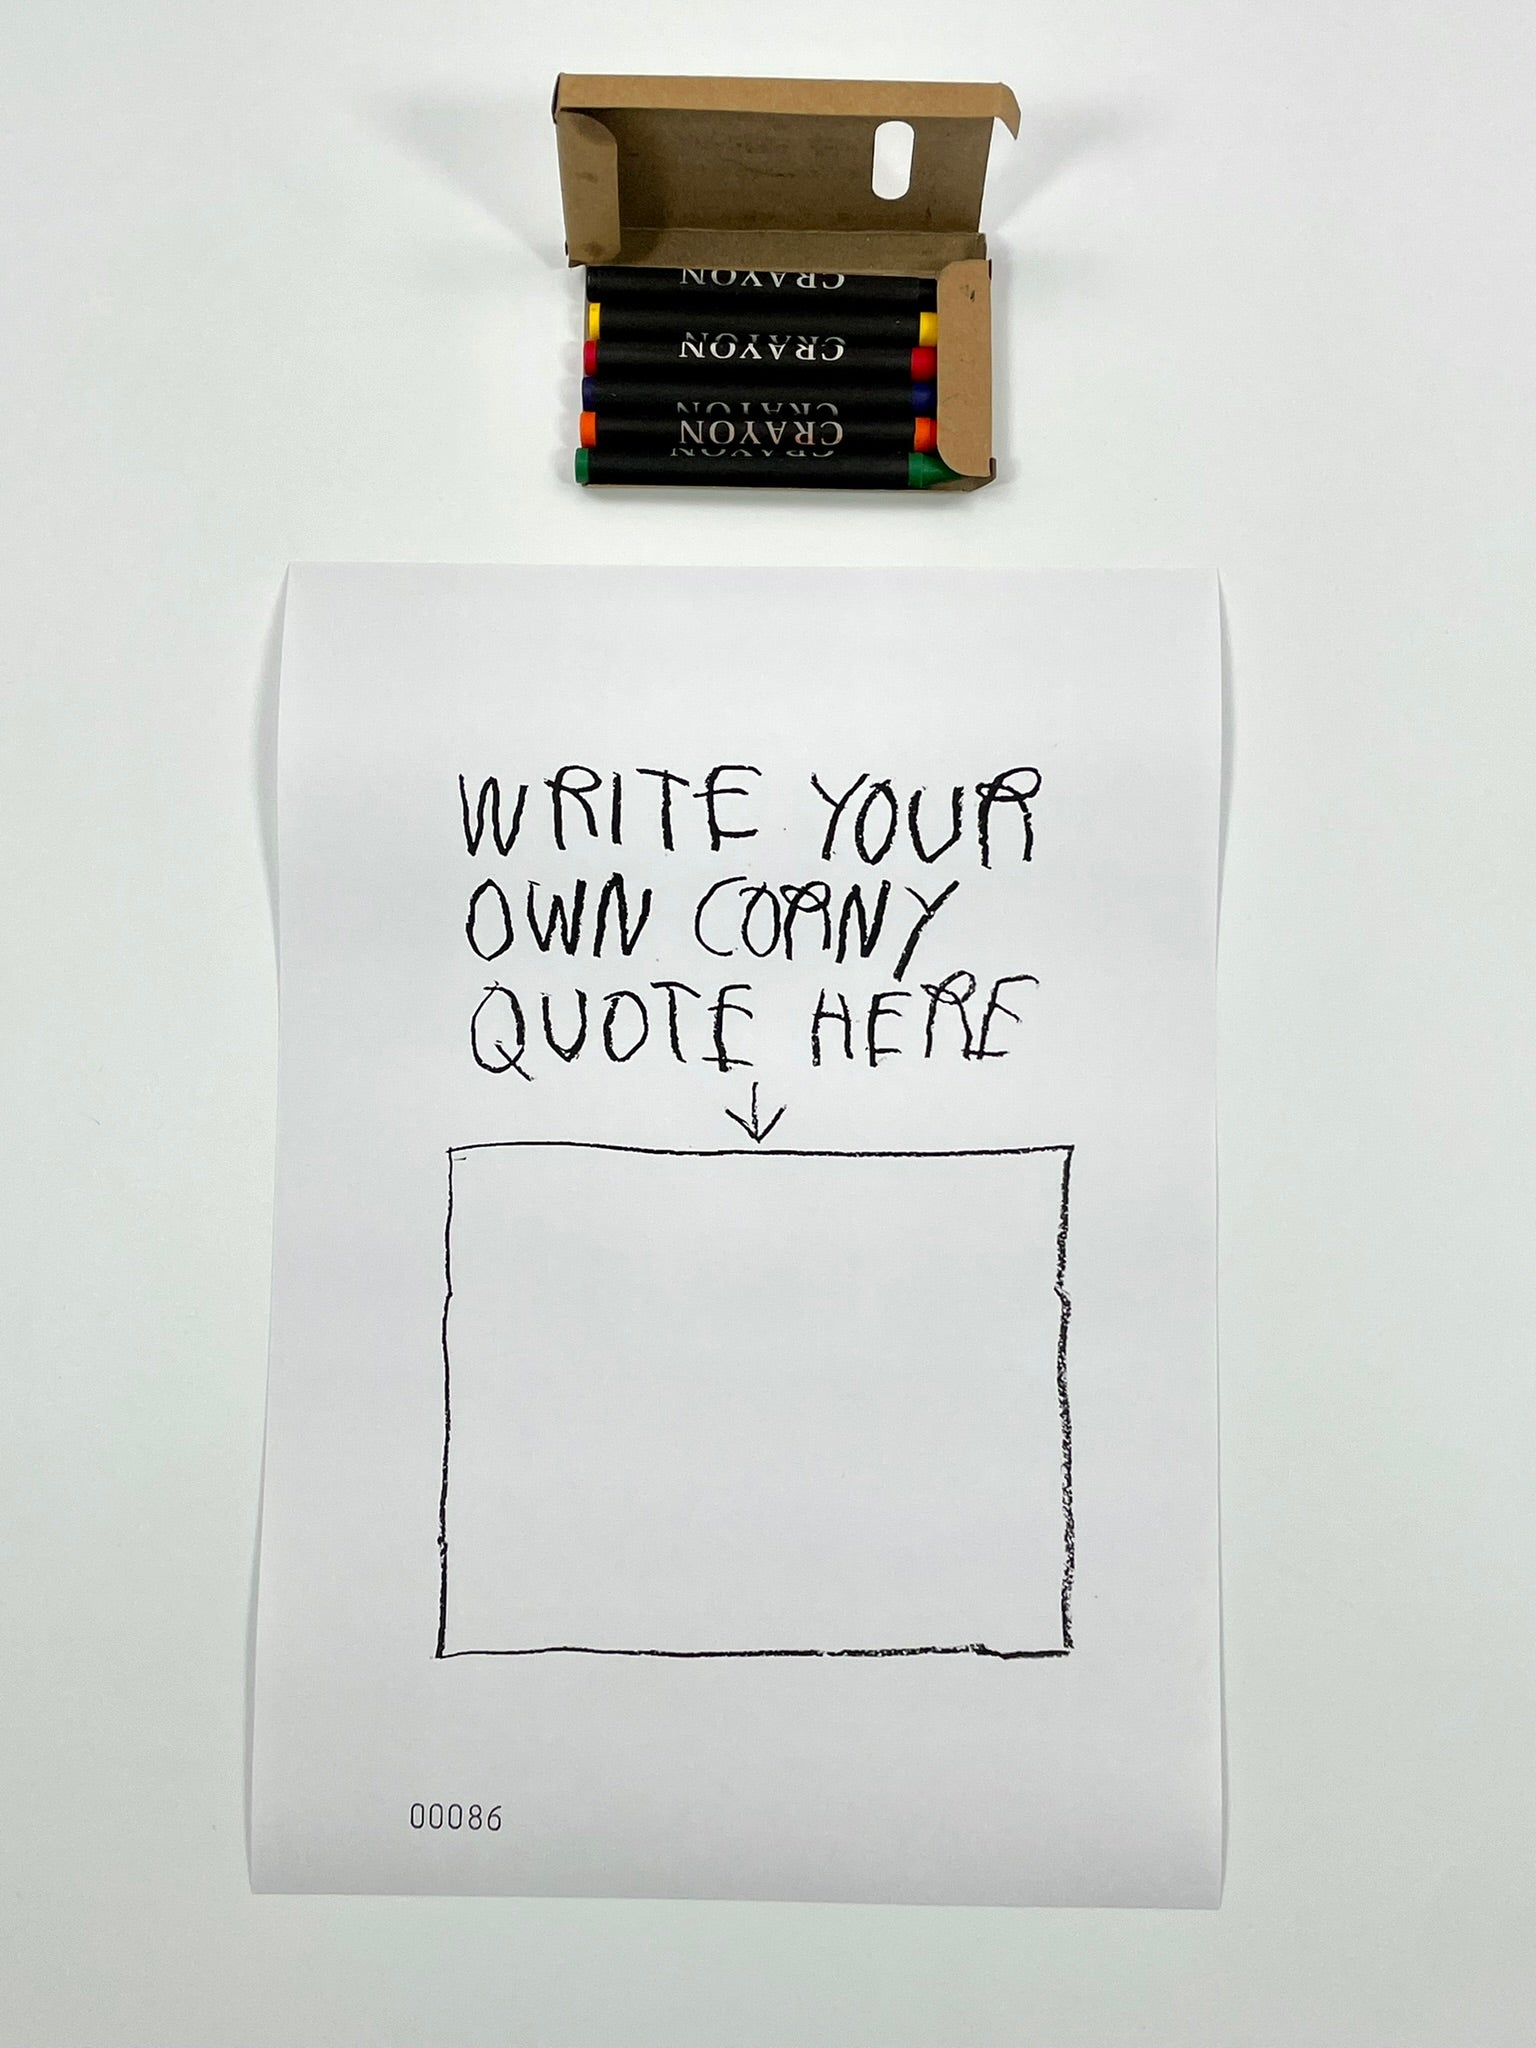 CRAYON
CRAYON
CRAYON
CRAYON
CRAYON
CRAYON
CRAYON
WRITE YOUR
OWN CORNY
QUOTE HERE
00086